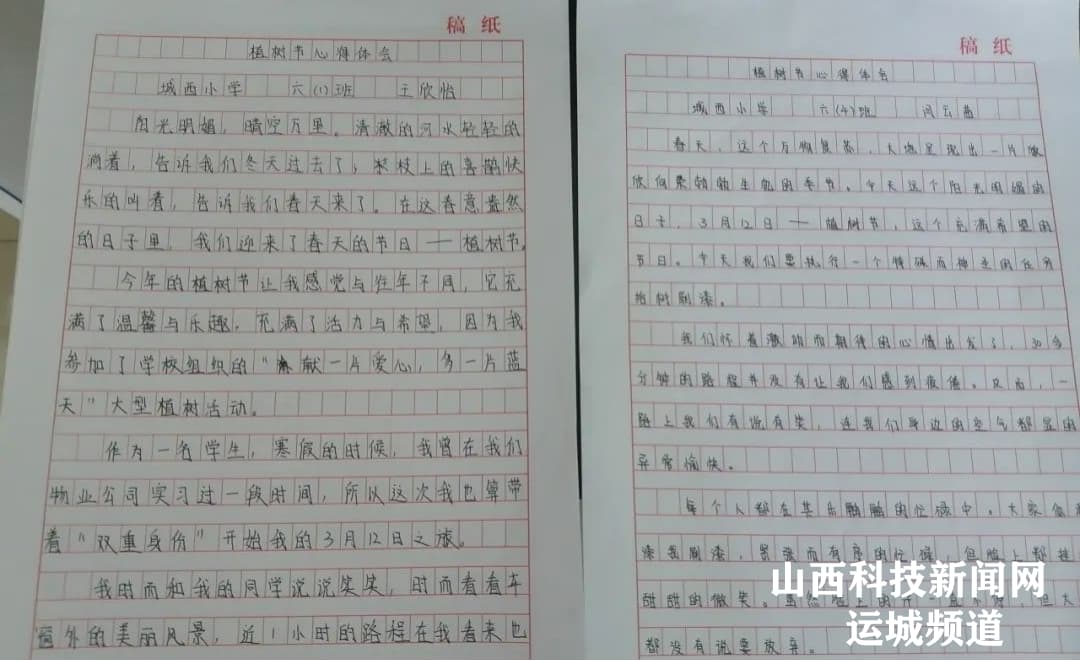 稿 纸
植树节心得体会
城西小学 六(1)班 王欣怡
阳光明媚，晴空万里。清澈的河水轻轻的
淌着，告诉我们冬天过去了；枝上的喜鹊快
乐的叫着，告诉我们春天来了。在这春意盎然
的日子里，我们迎来了春天的节日——植树节。
今年的植树节让我感觉与往年不同，它充
满了温馨与乐趣，充满了活力与希望，因为我
参加了学校组织的“献一片爱心，多一片蓝
天”大型植树活动。
作为一名学生，寒假的时候，我曾在我们
物业公司实习过一段时间，所以这次我也算带
着“双重身份”开始我的3月12日之旅。
我时而和我的同学说说笑笑，时而看看车
窗外的美丽风景，近1小时的路程在我看来也
稿 纸
植树节心得体会
城西小学 六(4)班 闫云
春天，这个万物复苏，大地呈现出一片欣
欣向荣勃勃生机的季节。今天这个阳光明媚的
日子，3月12日——植树节，这个充满希望的
节日。今天我们要执行一个特殊而神圣的任务
给树刷漆。
我们怀着激动而期待的心情出发了，30多
分钟的路程并没有让我们感到疲倦。反而，一
路上我们有说有笑，连我们身边的空气都显的
异常愉快。
每个人都在其乐融融的忙碌中。大家
漆我刷漆，紧张而有序的忙碌，但脸上都挂
甜甜的微笑。虽然 但大
都没有说要放弃。
山西科技新闻网
运城频道